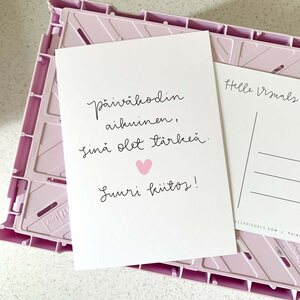 päiväkodin
aikuinen,
sinä olet tärkeä.
Suuri kiitos!
Helle Visuals